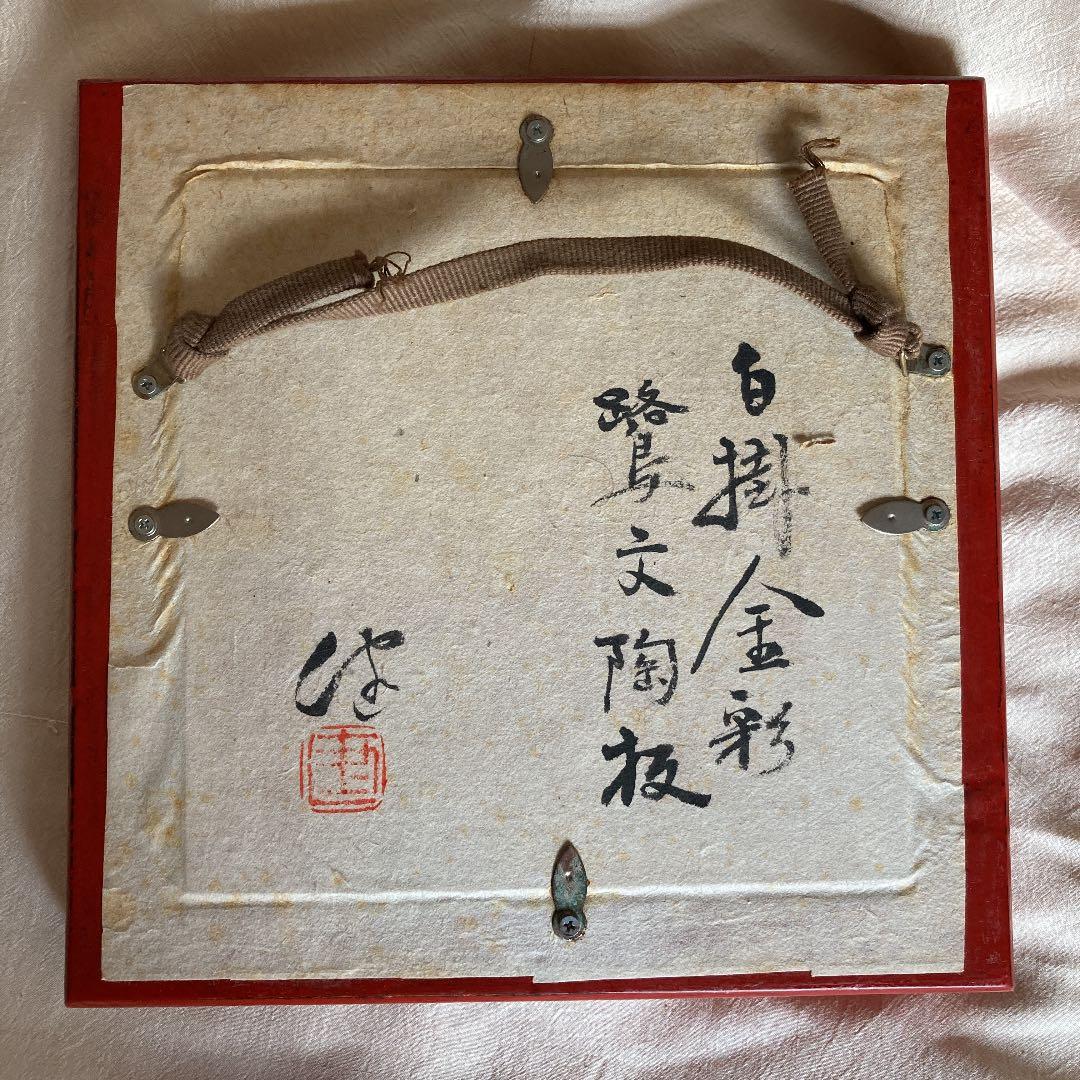 白掛金彩
鷺文陶板